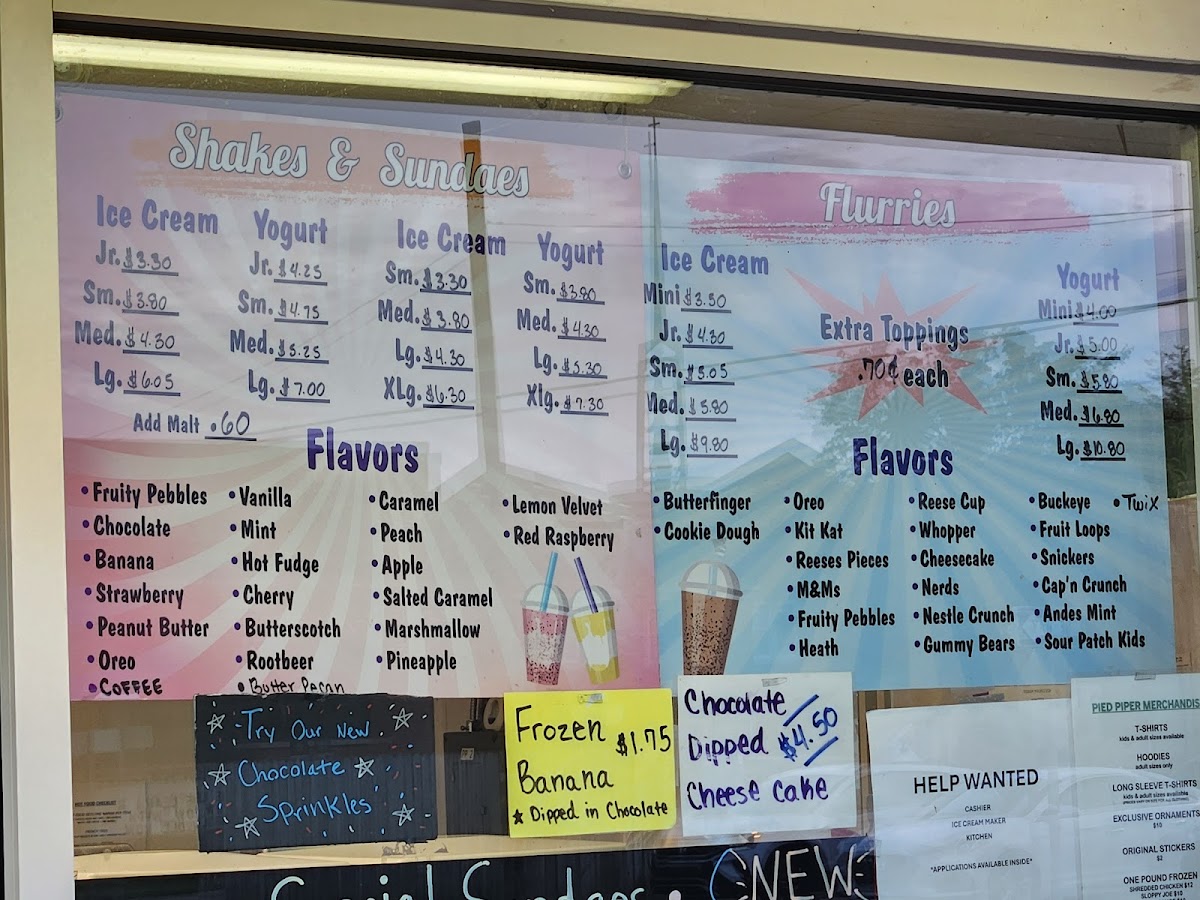 Shakes & Sundaes
Ice Cream
Jr. $3.30
Sm. $3.80
Med. $4.30
Lg. $6.05
Yogurt
Jr. $4.25
Sm. $4.75
Med. $5.25
Lg. $7.00
Add Malt .60
Ice Cream
Sm. $3.30
Med. $3.80
Lg. $4.30
XLg. $6.30
Yogurt
Sm. $3.80
Med. $4.30
Lg. $5.30
Xlg. $7.30
Flavors
• Fruity Pebbles
• Chocolate
• Banana
• Strawberry
• Peanut Butter
• Oreo
• COFFEE
• Vanilla
• Mint
• Hot Fudge
• Cherry
• Butterscotch
• Rootbeer
• Butter Pecan
• Caramel
• Peach
• Apple
• Salted Caramel
• Marshmallow
• Pineapple
• Lemon Velvet
• Red Raspberry
Flurries
Ice Cream
Mini $3.50
Jr. $4.30
Sm. $5.05
Med. $5.80
Lg. $9.80
Extra Toppings
.70¢ each
Yogurt
Mini $4.00
Jr. $5.00
Sm. $5.80
Med. $6.80
Lg. $10.80
Flavors
• Butterfinger
• Cookie Dough
• Oreo
• Kit Kat
• Reeses Pieces
• M&Ms
• Fruity Pebbles
• Heath
• Reese Cup
• Whopper
• Cheesecake
• Nerds
• Nestle Crunch
• Gummy Bears
• Buckeye
• Fruit Loops
• Snickers
• Cap'n Crunch
• Andes Mint
• Sour Patch Kids
• Twix
Try Our New
Chocolate
Sprinkles
Frozen
Banana
$1.75
Dipped in Chocolate
Chocolate
Dipped $4.50
Cheese cake
HELP WANTED
CASHIER
ICE CREAM MAKER
KITCHEN
*APPLICATIONS AVAILABLE INSIDE*
PIED PIPER MERCHANDIS
T-SHIRTS
kids & adult sizes available
HOODIES
adult sizes only
LONG SLEEVE T-SHIRTS
kids & adult sizes available
EXCLUSIVE ORNAMENTS
$10
ORIGINAL STICKERS
$2
ONE POUND FROZEN
SHREDDED CHICKEN $12
SLOPPY JOE $10
Special Sundaes • NEW